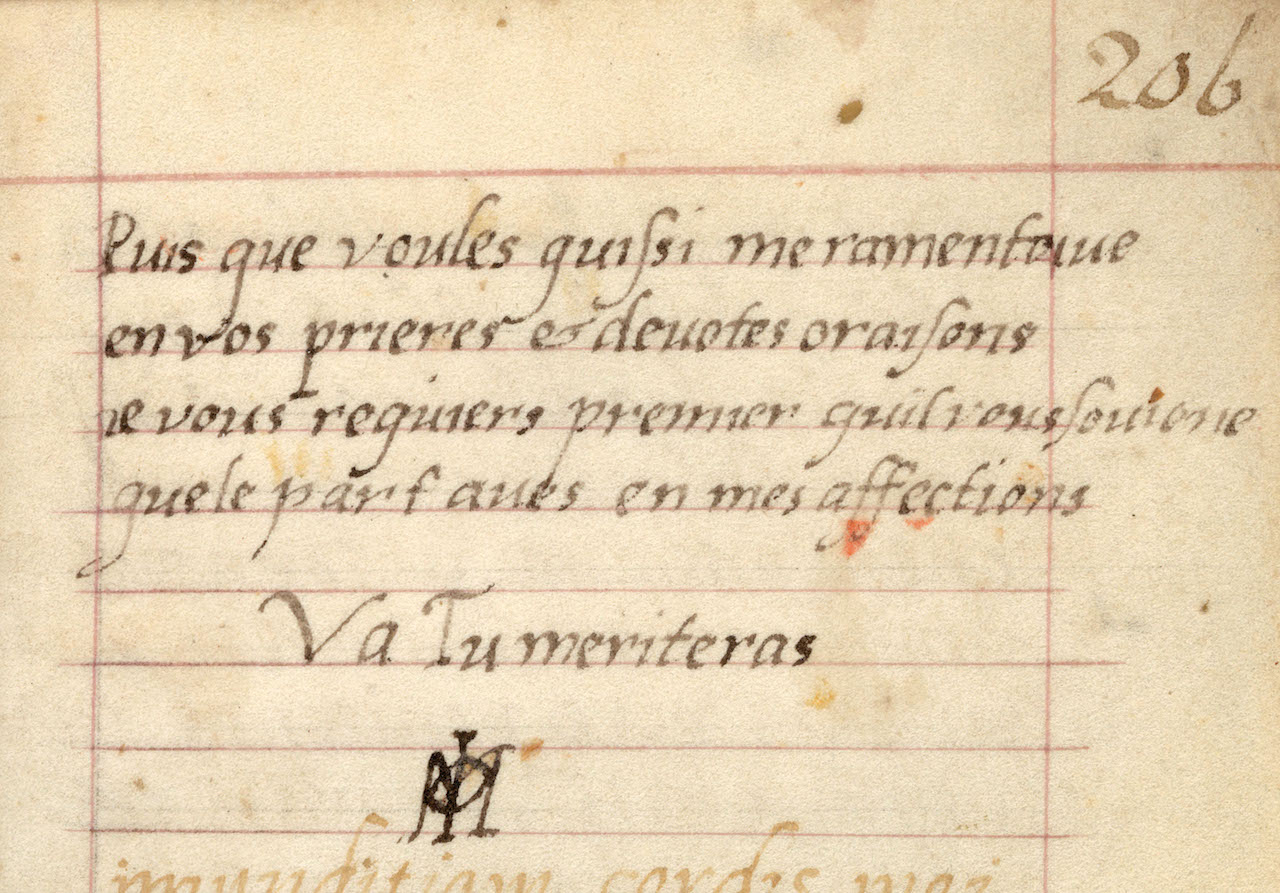 206
Puis que voules quissi me ramentaiue
en vos prieres & deuotes oraisons
ie vous requiers premier quil vous souuiene
quele part aues en mes affections
Va Tu meriteras
immunditiam cordis mei